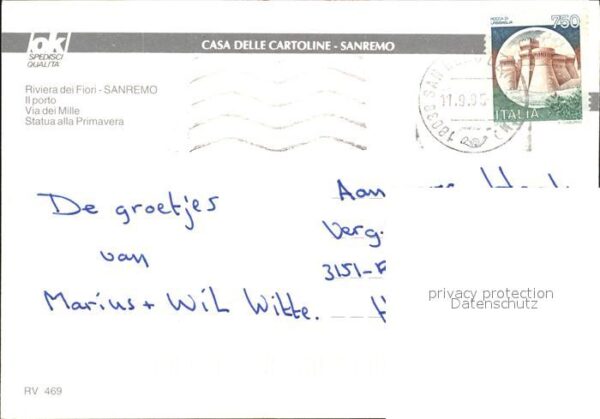 ok
SPEDISCI
QUALITÀ
CASA DELLE CARTOLINE - SANREMO
ROCCA DI
URBISAGLIA
750
ITALIA
Riviera dei Fiori - SANREMO
Il porto
Via dei Mille
Statua alla Primavera
18038 SAN
11.9.95
(IM)
De groetjes
van
Marius + Wil Witte.
Aan
Verg.
3151-
privacy protection
Datenschutz
RV 469